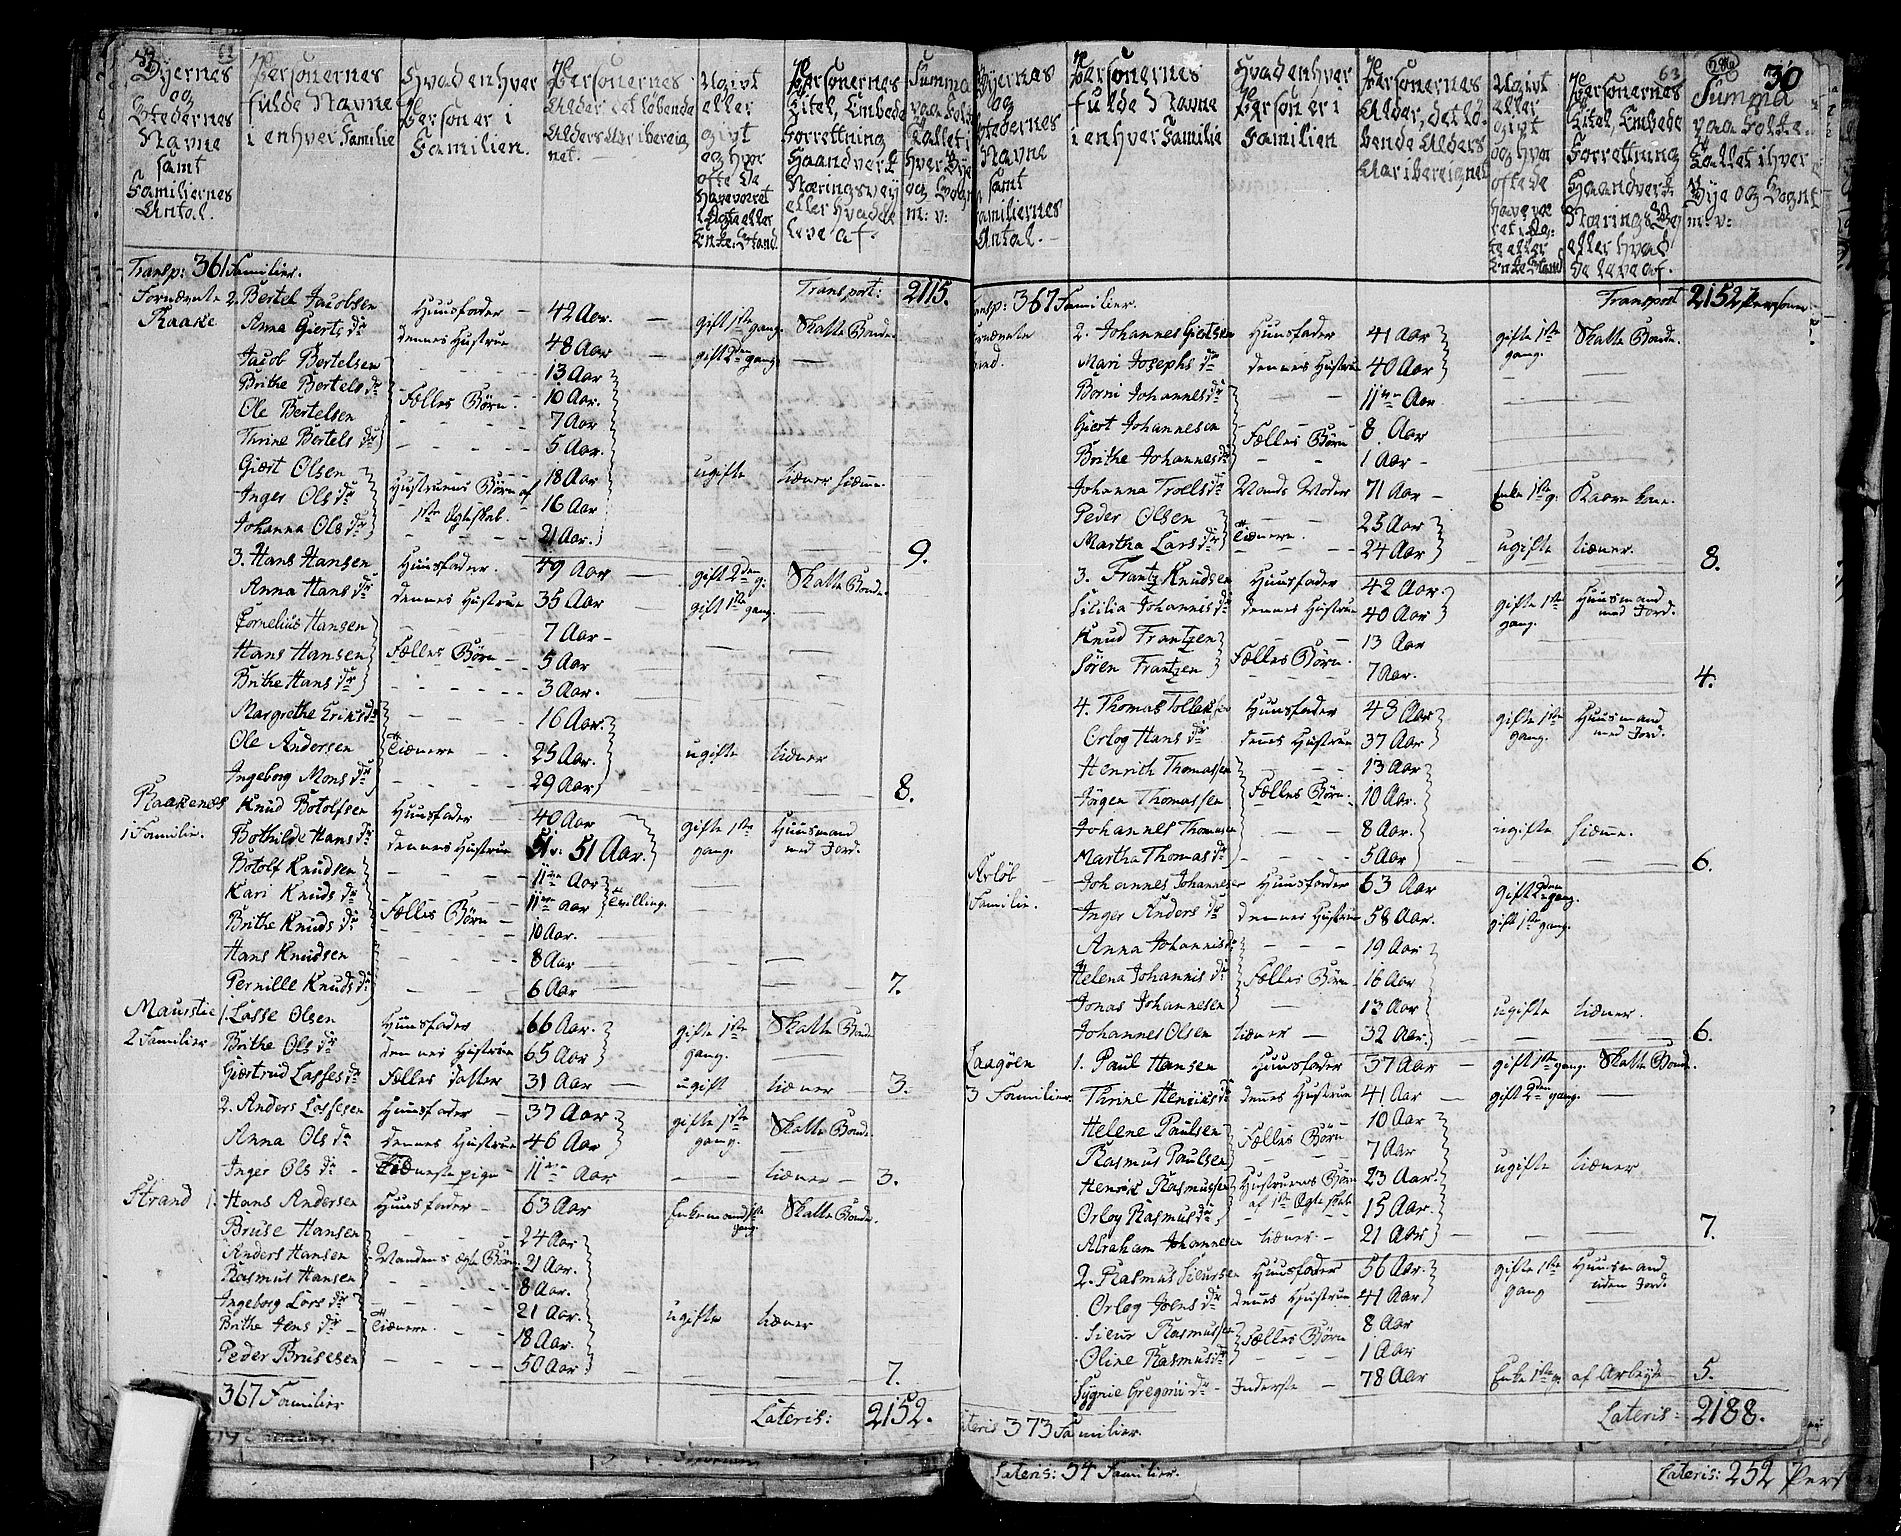 62
Byernes og Stedernes Navne samt Familiernes Antal.
Personernes fulde Navne i enhver Familie
Hvad enhver Person er i Familien.
Personernes Alder, det løbende Alders Aar ibereignet.
Ugivt eller givt og hvor ofte De have voret i Egte eller Enke Stand
Personernes Titel, Embede Forrettning Haandverk Næringsvey eller hvad de leve af.
Summa paa Folke Tallet i hver Bye og Sogn m: v:
Transp: 361 Familier.
Transport: 2115.
Fornævnte 2. Bertel Jacobsen Huusfader 42 Aar. gift 1ste gang. Skatte Bonde.
Raake Anna Gierts dr dennes Hustrue 48 Aar gift 2den gang
Jacob Bertelsen 13 Aar
Brithe Bertels dr Fælles Børn. 10 Aar.
Ole Bertelsen 7 Aar
Thrine Bertels dr 5 Aar.
Giert Olsen 18 Aar ugifte tiæner hiæme.
Inger Ols dr Hustruens Børn af 1ste Egteskab. 16 Aar
Johanna Ols dr 21 Aar. 9.
3. Hans Hansen Huusfader. 49 Aar gift 2den g. Skatte Bonde.
Anna Hans dr dennes Hustrue 35 Aar gift 1ste gang.
Cornelius Hansen 7 Aar
Hans Hansen Fælles Børn 5 Aar
Brithe Hans dr 3 Aar.
Margrethe Eriks dr 16 Aar
Ole Andersen Tiænere 25 Aar. ugifte tiæner
Ingeborg Mons dr 29 Aar 8.
Raakenæs Knud Botolfsen Huusfader 40 Aar gifte 1ste gang. Huusmand med Jord.
1 Familie. Bothilde Hans dr dennes Hustrue 51 Aar.
Botolf Knudsen 11ve Aar
Kari Knuds dr 11ve Aar Tvilling.
Brithe Knuds dr Fælles Børn 10 Aar.
Hans Knudsen 8 Aar
Pernille Knuds dr 6 Aar 7.
Maurstie 1. Lasse Olsen Huusfader 66 Aar. gifte 1ste gang. Skatte Bonde
2 Familier Brithe Ols dr dennes Hustrue 65 Aar
Giertrud Lasses dr Fælles datter 31 Aar ugift tiæner 3.
2. Anders Lassesen Huusfader 37 Aar gifte 1ste gang. Skatte Bonde.
Anna Ols dr dennes Hustrue 46 Aar
Inger Ols dr Tieneste pige 11ve Aar tiæner 3.
Strand 1. Hans Andersen Huusfader 63 Aar Enkemand 1ste gang. Skatte Bonde.
Bruse Hansen 24 Aar
Anders Hansen Mandens ægte Børn 21 Aar.
Rasmus Hansen 8 Aar.
Ingeborg Lars dr 21 Aar
Brithe Jens dr Tiænere. 18 Aar. ugifte tiæner
Peder Brusesen 50 Aar 7.
367 Familier Lateris: 2152.
63
30
Byernes og Stedernes Navne samt Familiernes Antal.
Personernes fulde Navne i enhver Familie
Hvad enhver Person er i Familien
Personernes Alder, det løbende Alders Aar ibereignet
Ugivt eller givt og hvor ofte de have været i Egte eller Enke Stand
Personernes Titel, Embede Forrettning Haandverk Nærings Vey eller hvad de leve af.
Summa paa Folke Tallet i hver Bye og Sogn m: v:
Transp: 367 Familier.
Transport 2152 Personer.
2. Johannes Giertsen Huusfader 41 Aar gifte 1ste gang. Skatte Bonde.
Mari Josephs dr dennes Hustrue 40 Aar
Børni Johannes dr 11ve Aar
Giert Johannesen Fælles Børn 8. Aar
Brithe Johannes dr 1 Aar
Johanna Troels dr Mands Moder 71 Aar Enke 1ste g. Kaarekone.
Peder Olsen 25 Aar
Martha Lars dr Tiænere. 24 Aar ugifte tiæner. 8.
3. Frantz Knudsen Huusfader 42 Aar. gifte 1ste gang. Huusmand med Jord.
Sicilia Johannis dr dennes Hustrue 40 Aar
Knud Frantzen 13 Aar
Søren Frantzen Fælles Børn. 7 Aar. 4.
4. Thomas Tollefsen Huusfader 43 Aar gifte 1ste gang. Huusmand med Jord.
Orlog Hans dr dennes Hustrue 37 Aar
Henrich Thomassen 13 Aar
Jørgen Thomassen Fælles Børn. 10 Aar.
Johannes Thomassen 8 Aar. ugifte hiæme.
Martha Thomas dr 5 Aar 6.
Arløb Johannes Johannesen Huusfader 63 Aar gift 2den gang.
Familie. Inger Anders dr dennes Hustrue 58 Aar. gift 1ste gang.
Anna Johannis dr 19 Aar
Helena Johannis dr Fælles Børn 16 Aar
Jonas Johannesen 13 Aar ugifte tiæner.
Johannes Olsen tiæner 32 Aar. 6.
Laagøen 1. Paul Hansen Huusfader 37 Aar gift 1ste gang. Skatte Bonde.
3 Familier. Thrine Henriks dr dennes Hustrue 41 Aar gift 2den gang.
Helene Paulsen 10 Aar
Rasmus Paulsen Fælles Børn 7 Aar
Henrik Rasmussen Hustruens Børn af 1ste Egteskab 23 Aar. ugifte tiæner
Orlog Rasmus dr 15 Aar.
Abraham Johannesen tiæner 21 Aar 7.
2. Rasmus Siursen Huusfader 56 Aar. gifte 1ste gang Huusmand uden Jord.
Orlog Joens dr dennes Hustrue 41 Aar
Siur Rasmussen Fælles Børn 8 Aar
Oline Rasmus dr 1 Aar
Sygnie Gregorii dr Inderste 78 Aar Enke 1ste g. af Arbeyde 5.
Lateris 373 Familier. Lateris: 2188.
Lateris: 54 Familier. Lateris: 252 Pers